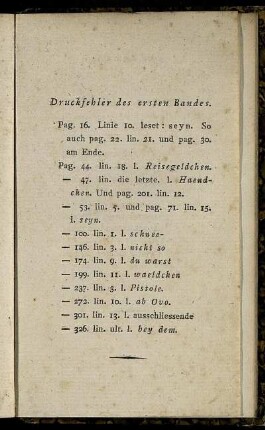 Druckfehler des ersten Bandes.
Pag. 16. Linie 10. leset: seyn. So
auch pag. 22. lin. 21. und pag. 30.
am Ende.
Pag. 44. lin. 18. l. Reisegeldchen.
— 47. lin. die letzte. l. Haend-
chen. Und pag. 201. lin. 12.
— 53. lin. 5. und pag. 71. lin. 15.
l. seyn.
— 100. lin. 1. l. schnee-
— 146. lin. 3. l. nicht so
— 174. lin. 9. l. du warst
— 199. lin. 11. l. waeldchen
— 237. lin. 5. l. Pistole.
— 272. lin. 10. l. ab Ovo.
— 301. lin. 13. l. ausschliessende
— 326. lin. ult. l. bey dem.